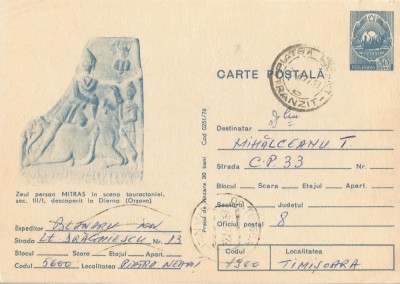 CARTE POȘTALĂ
PIATRA
TRANZIT
Zeul persan MITRAS în scena tauroctoniei,
sec. III/I, descoperit la Dierna (Orșova)
Cod 0251/76
Prețul de vînzare 30 bani
Destinatar
MIHĂLCEANU T.
Strada C.P. 33 Nr.
Blocul Scara Etajul Apart.
Sectorul Județul
Oficiul poștal 8
Codul Localitatea
1900 TIMIȘOARA
Expeditor ION
Strada Lt DRĂGHIESCU Nr. 13
Blocul Scara Etaj. Apart.
Codul 5600 Localitatea PIATRA NEAMȚ